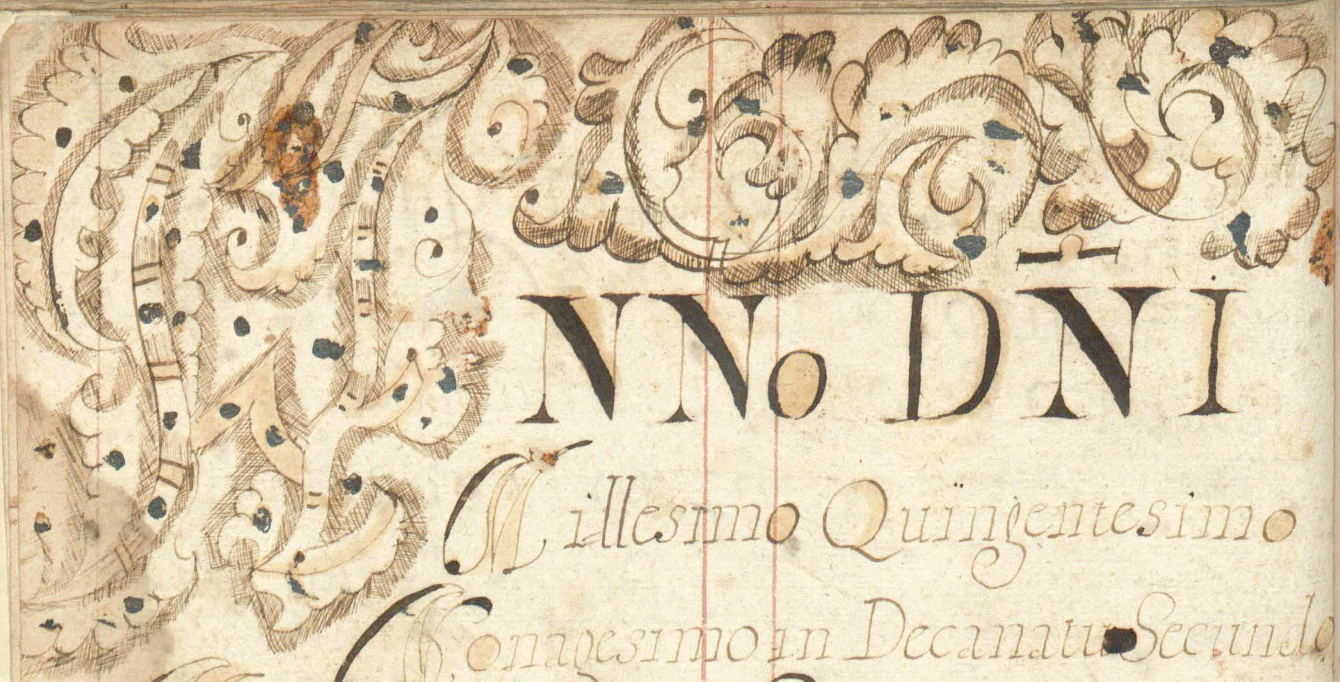 ANNo DÑI
Millesimo Quingentesimo
Nonagesimo in Decanatu Secundo